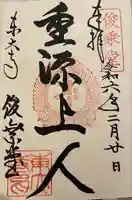 奉拝
俊乗堂
令和六年二月廿日
重源上人
東大寺
俊乗堂